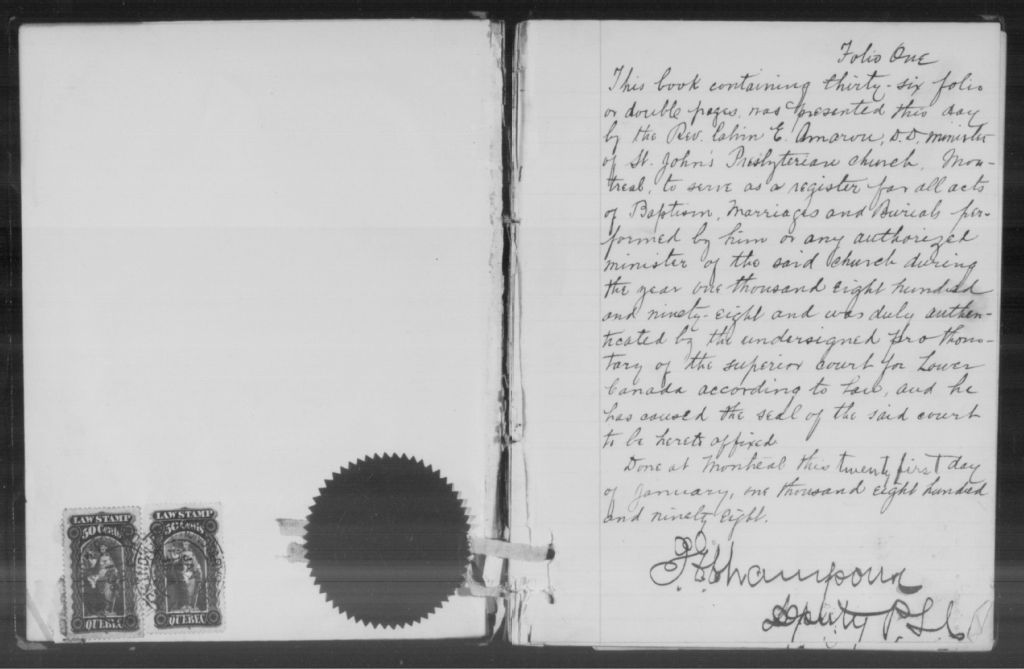 LAW STAMP
50 Cents
QUEBEC
LAW STAMP
50 Cents
QUEBEC
Folio One
This book containing thirty-six folio
or double pages, was presented this day
by the Rev. Calvin E. Amaron, D.D, minister
of St. John's Presbyterian church, Mon-
treal, to serve as a register for all acts
of Baptism, Marriages and Burials per-
formed by him or any authorized
minister of the said church during
the year one thousand eight hundred
and ninety-eight and was duly authen-
ticated by the undersigned prothono-
tary of the superior court for Lower
Canada according to law, and he
has caused the seal of the said court
to be hereto affixed
Done at Montreal this twenty first day
of January, one thousand eight hundred
and ninety eight.
Deputy P.S.C